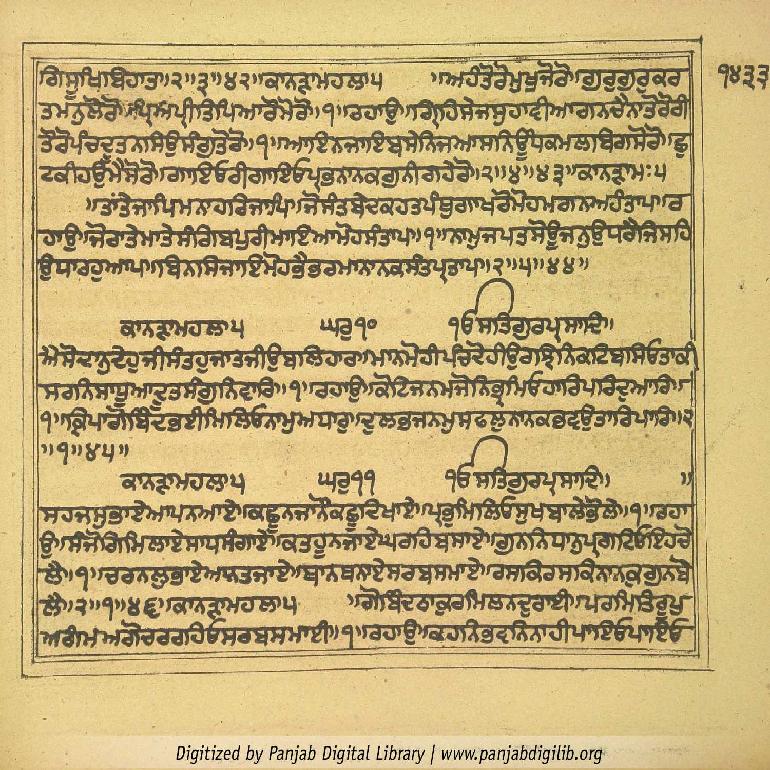 ੧੪੩੩
ਗਿਸੂਖਿਬਿਹਾਤਾ॥੨॥੩॥੪੨॥ਕਾਨੜਾਮਹਲਾ੫ ॥ਅਹੰਤੋਰੋਮੁਖੁਜੋਰੋ॥ਗੁਰੁਗੁਰੁਕਰ
ਤਮਨੁਲੋਰੋ॥ਪ੍ਰਿਅਪ੍ਰੀਤਿਪਿਆਰੋਮੋਰੋ॥੧॥ਰਹਾਉ॥ਗ੍ਰਿਹਿਸੇਜਸੁਹਾਵੀਆਗਨਿਚੈਨਾਤੋਰੋਰੀ
ਤੋਰੋਪੰਚਦੂਤਨਾਸਿਉਸੰਗੁਤੋਰੋ॥੧॥ਆਇਨਜਾਇਬਸੇਨਿਜਆਸਨਿਊਂਧਕਮਲਬਿਗਸੋਰੋ॥ਛੁ
ਟਕੀਹਉਮੈਸੋਰੋ॥ਗਾਇਓਰੀਗਾਇਓਪ੍ਰਭਨਾਨਕਗੁਨੀਗਹੇਰੋ॥੨॥੪॥੪੩॥ਕਾਨੜਾਮਃ੫
॥ਤਾਂਤੇਜਾਪਿਮਨਾਹਰਿਜਾਪਿ॥ਜੋਸੰਤਬੇਦਕਹਤਪੰਥੁਗਾਖਰੋਮੋਹਮਗਨਅਹੰਤਾਪ॥ਰ
ਹਾਉ॥ਜੋਰਾਤੇਮਾਤੇਸੰਗਿਬਪੁਰੀਮਾਇਆਮੋਹਸੰਤਾਪ॥੧॥ਨਾਮੁਜਪਤਸੋਊਜਨੁਉਧਰੈਜਿਸਹਿ
ਉਧਾਰਹੁਆਪ॥ਬਿਨਸਿਜਾਇਮੋਹਭੈਭਰਮਾਨਾਨਕਸੰਤਪ੍ਰਤਾਪ॥੨॥੫॥੪੪॥
ਕਾਨੜਾਮਹਲਾ੫ ਘਰੁ੧੦ ੴਸਤਿਗੁਰਪ੍ਰਸਾਦਿ॥
ਐਸੋਦਾਨੁਦੇਹੁਜੀਸੰਤਹੁਜਾਤਜੀਉਬਲਿਹਾਰਿ॥ਮਾਨਮੋਹੀਪੰਚਦੋਹੀਉਰਝਿਨਿਕਟਿਬਸਿਓਤਾਕੀ
ਸਰਨਿਸਾਧੂਆਦੂਤਸੰਗੁਨਿਵਾਰਿ॥੧॥ਰਹਾਉ॥ਕੋਟਿਜਨਮਜੋਨਿਭ੍ਰਮਿਓਹਾਰਿਪਰਿਓਦੁਆਰਿ॥
੧॥ਕਿਰਪਾਗੋਬਿੰਦਭਈਮਿਲਿਓਨਾਮੁਅਧਾਰੁ॥ਦੁਲਭਜਨਮੁਸਫਲੁਨਾਨਕਭਵਉਤਾਰਿਪਾਰਿ॥੨
॥੧॥੪੫॥
ਕਾਨੜਾਮਹਲਾ੫ ਘਰੁ੧੧ ੴਸਤਿਗੁਰਪ੍ਰਸਾਦਿ॥ ॥
ਸਹਜਸੁਭਾਏਆਪਨਆਏ॥ਕਛੂਨਜਾਨੌਕਛੂਦਿਖਾਏ॥ਪ੍ਰਭੁਮਿਲਿਓਸੁਖਬਾਲੇਭੋਲੇ॥੧॥ਰਹਾ
ਉ॥ਸੰਜੋਗਿਮਿਲਾਏਸਾਧਸੰਗਾਏ॥ਕਤਹੂਨਜਾਏਘਰਹਿਬਸਾਏ॥ਗੁਨਨਿਧਾਨੁਪ੍ਰਗਟਿਓਇਹਚੋ
ਲੈ॥੧॥ਚਰਨਲੁਭਾਏਅਨਤਜਾਏ॥ਥਾਨਥਨਾਏਸਰਬਸਮਾਏ॥ਰਸਕਿਰਸਕਿਨਾਨਕੁਗੁਨਬੋ
ਲੈ॥੨॥੧॥੪੬॥ਕਾਨੜਾਮਹਲਾ੫ ॥ਗੋਬਿੰਦਠਾਕੁਰਮਿਲਨਦੁਰਾਈ॥ਪਰਮਿਤਿਰੂਪੁ
ਅਗੰਮਅਗੋਚਰਰਹਿਓਸਰਬਸਮਾਈ॥੧॥ਰਹਾਉ॥ਕਹਨਿਭਵਨਿਨਾਹੀਪਾਇਓਪਾਇਓ
Digitized by Panjab Digital Library | www.panjabdigilib.org